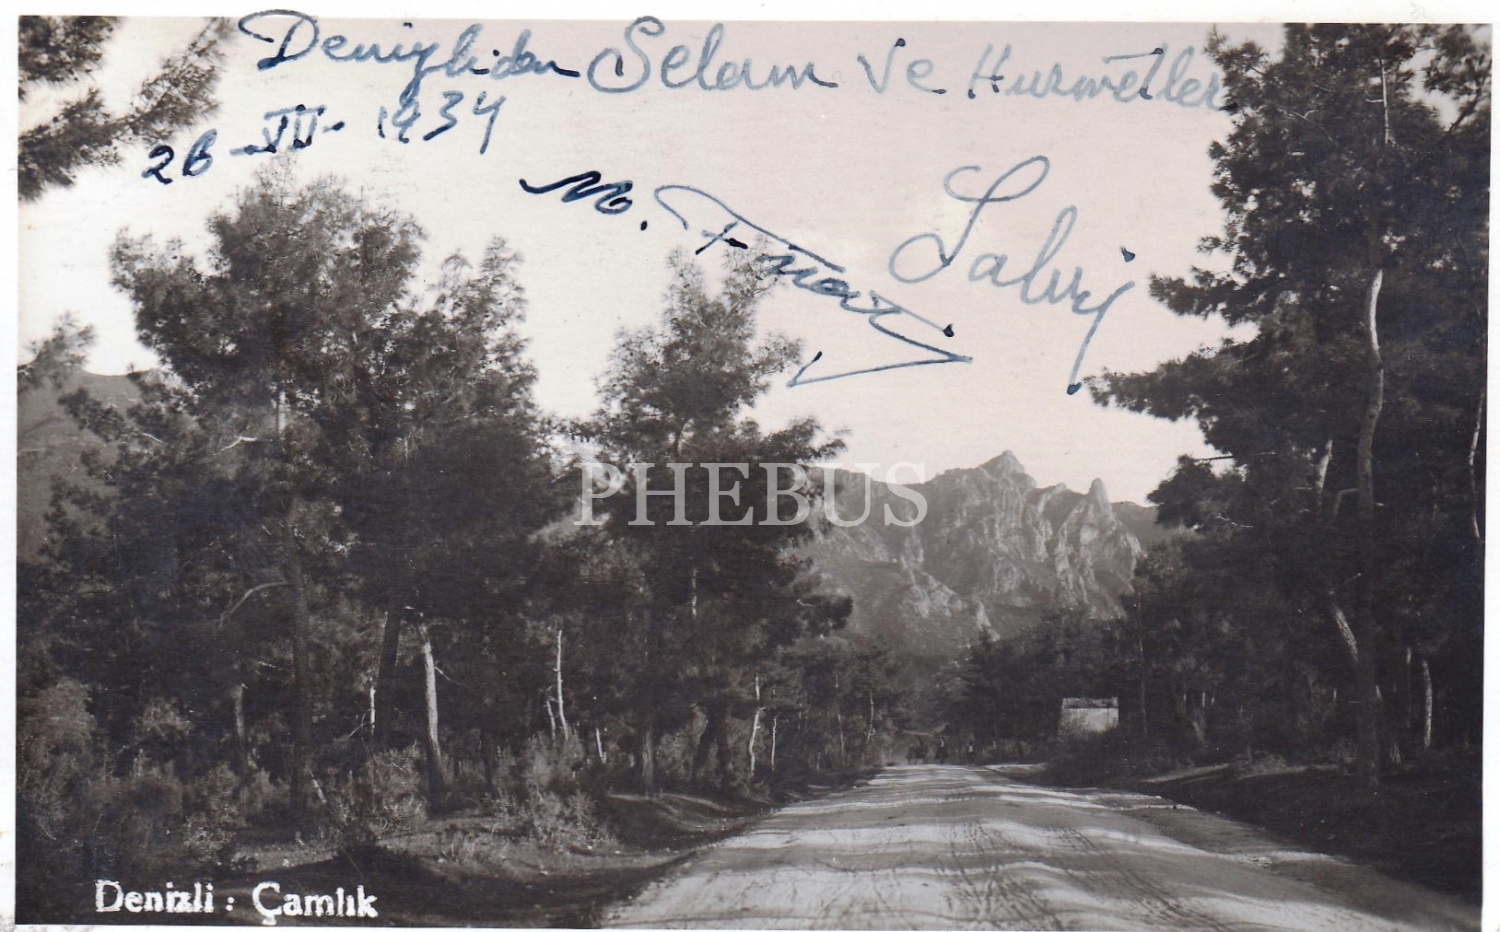 Denizliden Selam ve Hurmetler
26-VII-1934
M.
PHEBUS
Denizli : Çamlık